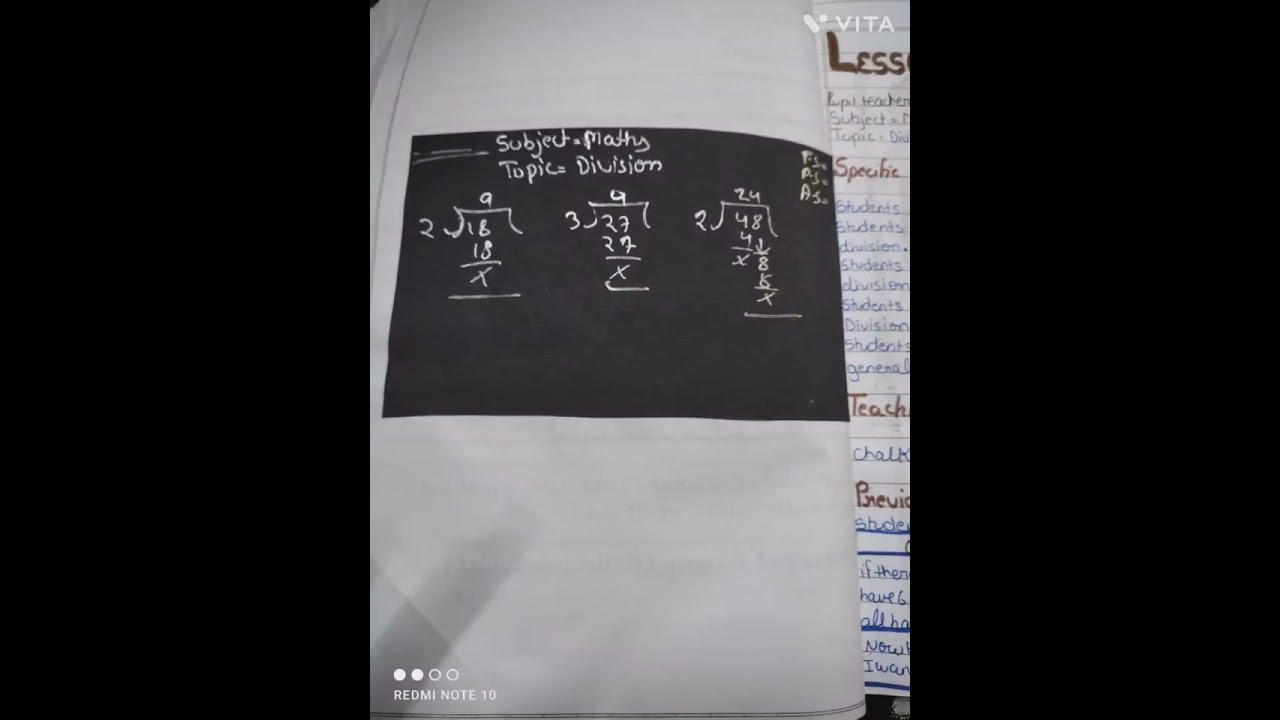 VITA
Subject = Maths
Topic = Division
9
2 18
18
x
9
3 27
27
x
24
2 48
4
x 8
8
x
P.S =
P.S =
A.S =
Lesso
Pupil teacher
Subject = M
Topic = Div
Specific
Students
Students
division.
Students
division
Students
Division
Students
general
Teach
Chalk
Previo
Stude
if ther
have 6
all ha
Now
I wan
REDMI NOTE 10